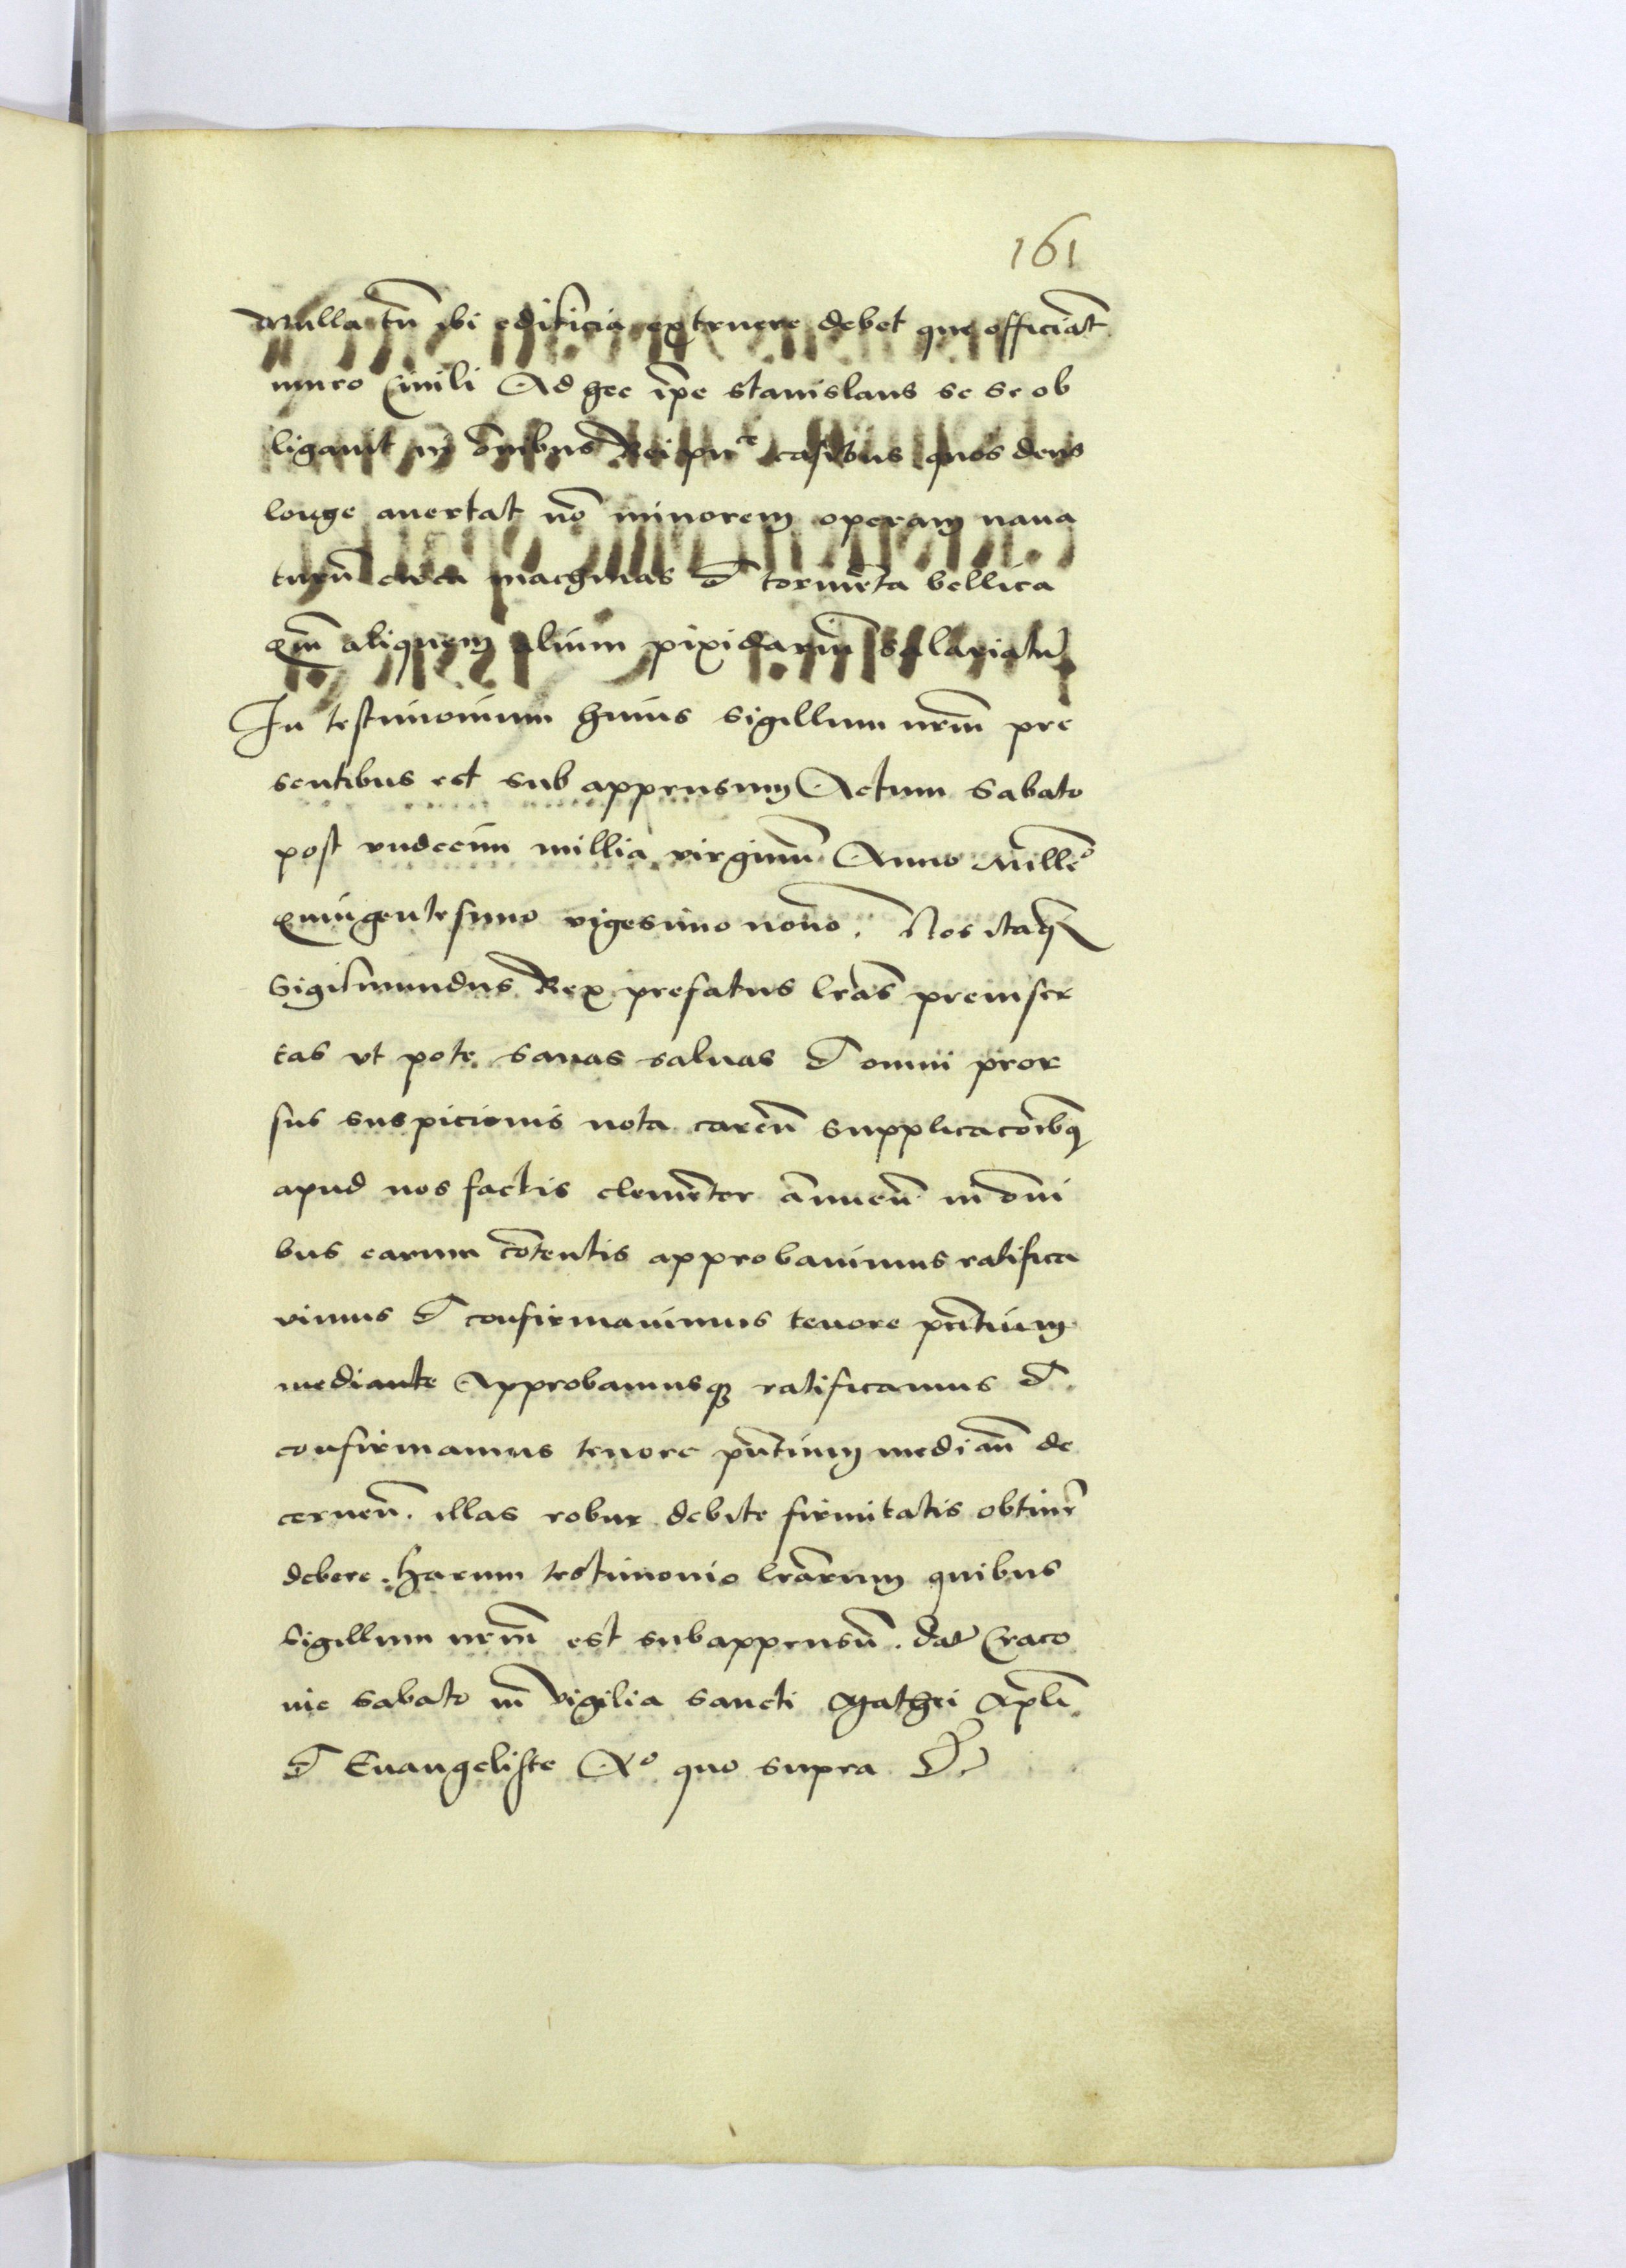 161
Nulla tn̄ ibi edificia extruere debet que officiāt
muro Ciuili Ad hec ip̄e Stanislaus se se ob
ligauit in om̄ibus Rei pu ce casibus quos deus
longe auertat nō minorem operam naua
turū circa machinas et tormēta bellica
qm̄ aliquem alium pixidariū salariatū
In testimonium huius Sigillum nr̄m pre
sentibus est sub appensum Actum Sabato
post vndecim millia virginū Anno Millō
quingentesimo vigesimo nono. Nos itaq3
Sigismundus Rex prefatus lr̄as preinser
tas vt pote sanas saluas et omni pror
sus suspicionis nota carēn Supplicacōibq3
apud nos factis clemēter ānuēn in om̄i
bus earum cōtentis approbauimus ratifica
vimus et confirmauimus tenore pn̄tium
mediante Approbamusq3 ratificamus et
confirmamus tenore pn̄tium mediān de
cernēn. illas robur debite firmitatis obtiner̄
debere. Harum testimonio lr̄arum quibus
Sigillum nr̄m est subappensū. Dat Craco
uie Sabato in Vigilia Sancti Mathei Apl̄i
et Euangeliste Ao quo supra